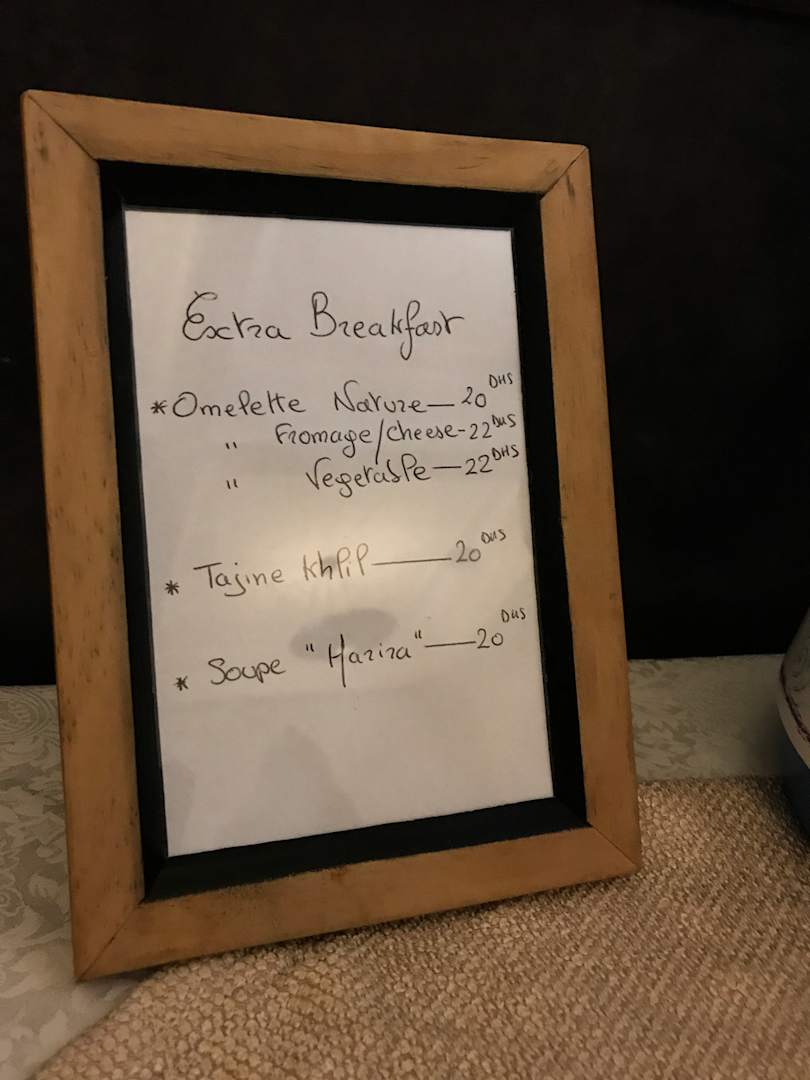 Extra Breakfast
* Omelette Nature — 20 DHS
" Fromage/cheese - 22 DHS
" Vegetable — 22 DHS
* Tajine Khlil — 20 DHS
* Soupe "Harira" — 20 DHS